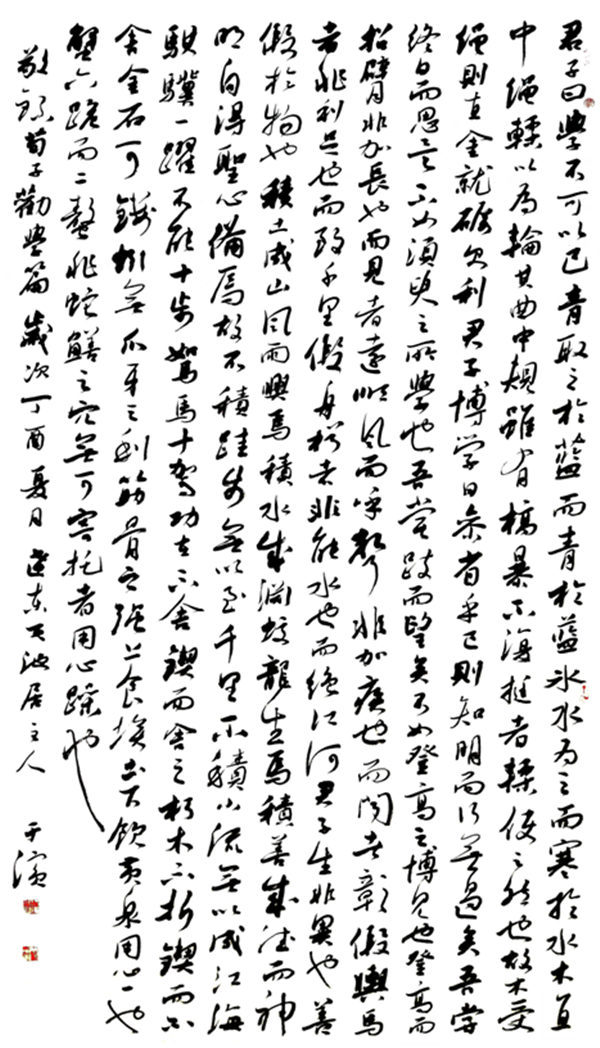 君子曰學不可以已青取之於藍而青於藍冰水為之而寒於水木直
中繩輮以為輪其曲中規雖有槁暴不復挺者輮使之然也故木受
繩則直金就礪則利君子博学日参省乎己則知明而行無過矣吾嘗
終日而思矣不如須臾之所學也吾嘗跂而望矣不如登高之博見也登高而
招臂非加長也而見者遠順風而呼聲非加疾也而聞者彰假輿馬
者非利足也而致千里假舟楫者非能水也而絕江河君子生非異也善
假於物也積土成山風雨興焉積水成淵蛟龍生焉積善成德而神
明自得聖心備焉故不積跬步無以至千里不積小流無以成江海
騏驥一躍不能十步駑馬十駕功在不舍鍥而舍之朽木不折鍥而不
舍金石可鏤蚓無爪牙之利筋骨之强上食埃土下飲黄泉用心一也
蟹六跪而二螯非蛇鱔之穴無可寄托者用心躁也
敬錄荀子勸學篇歲次丁酉夏月遼東天池居主人